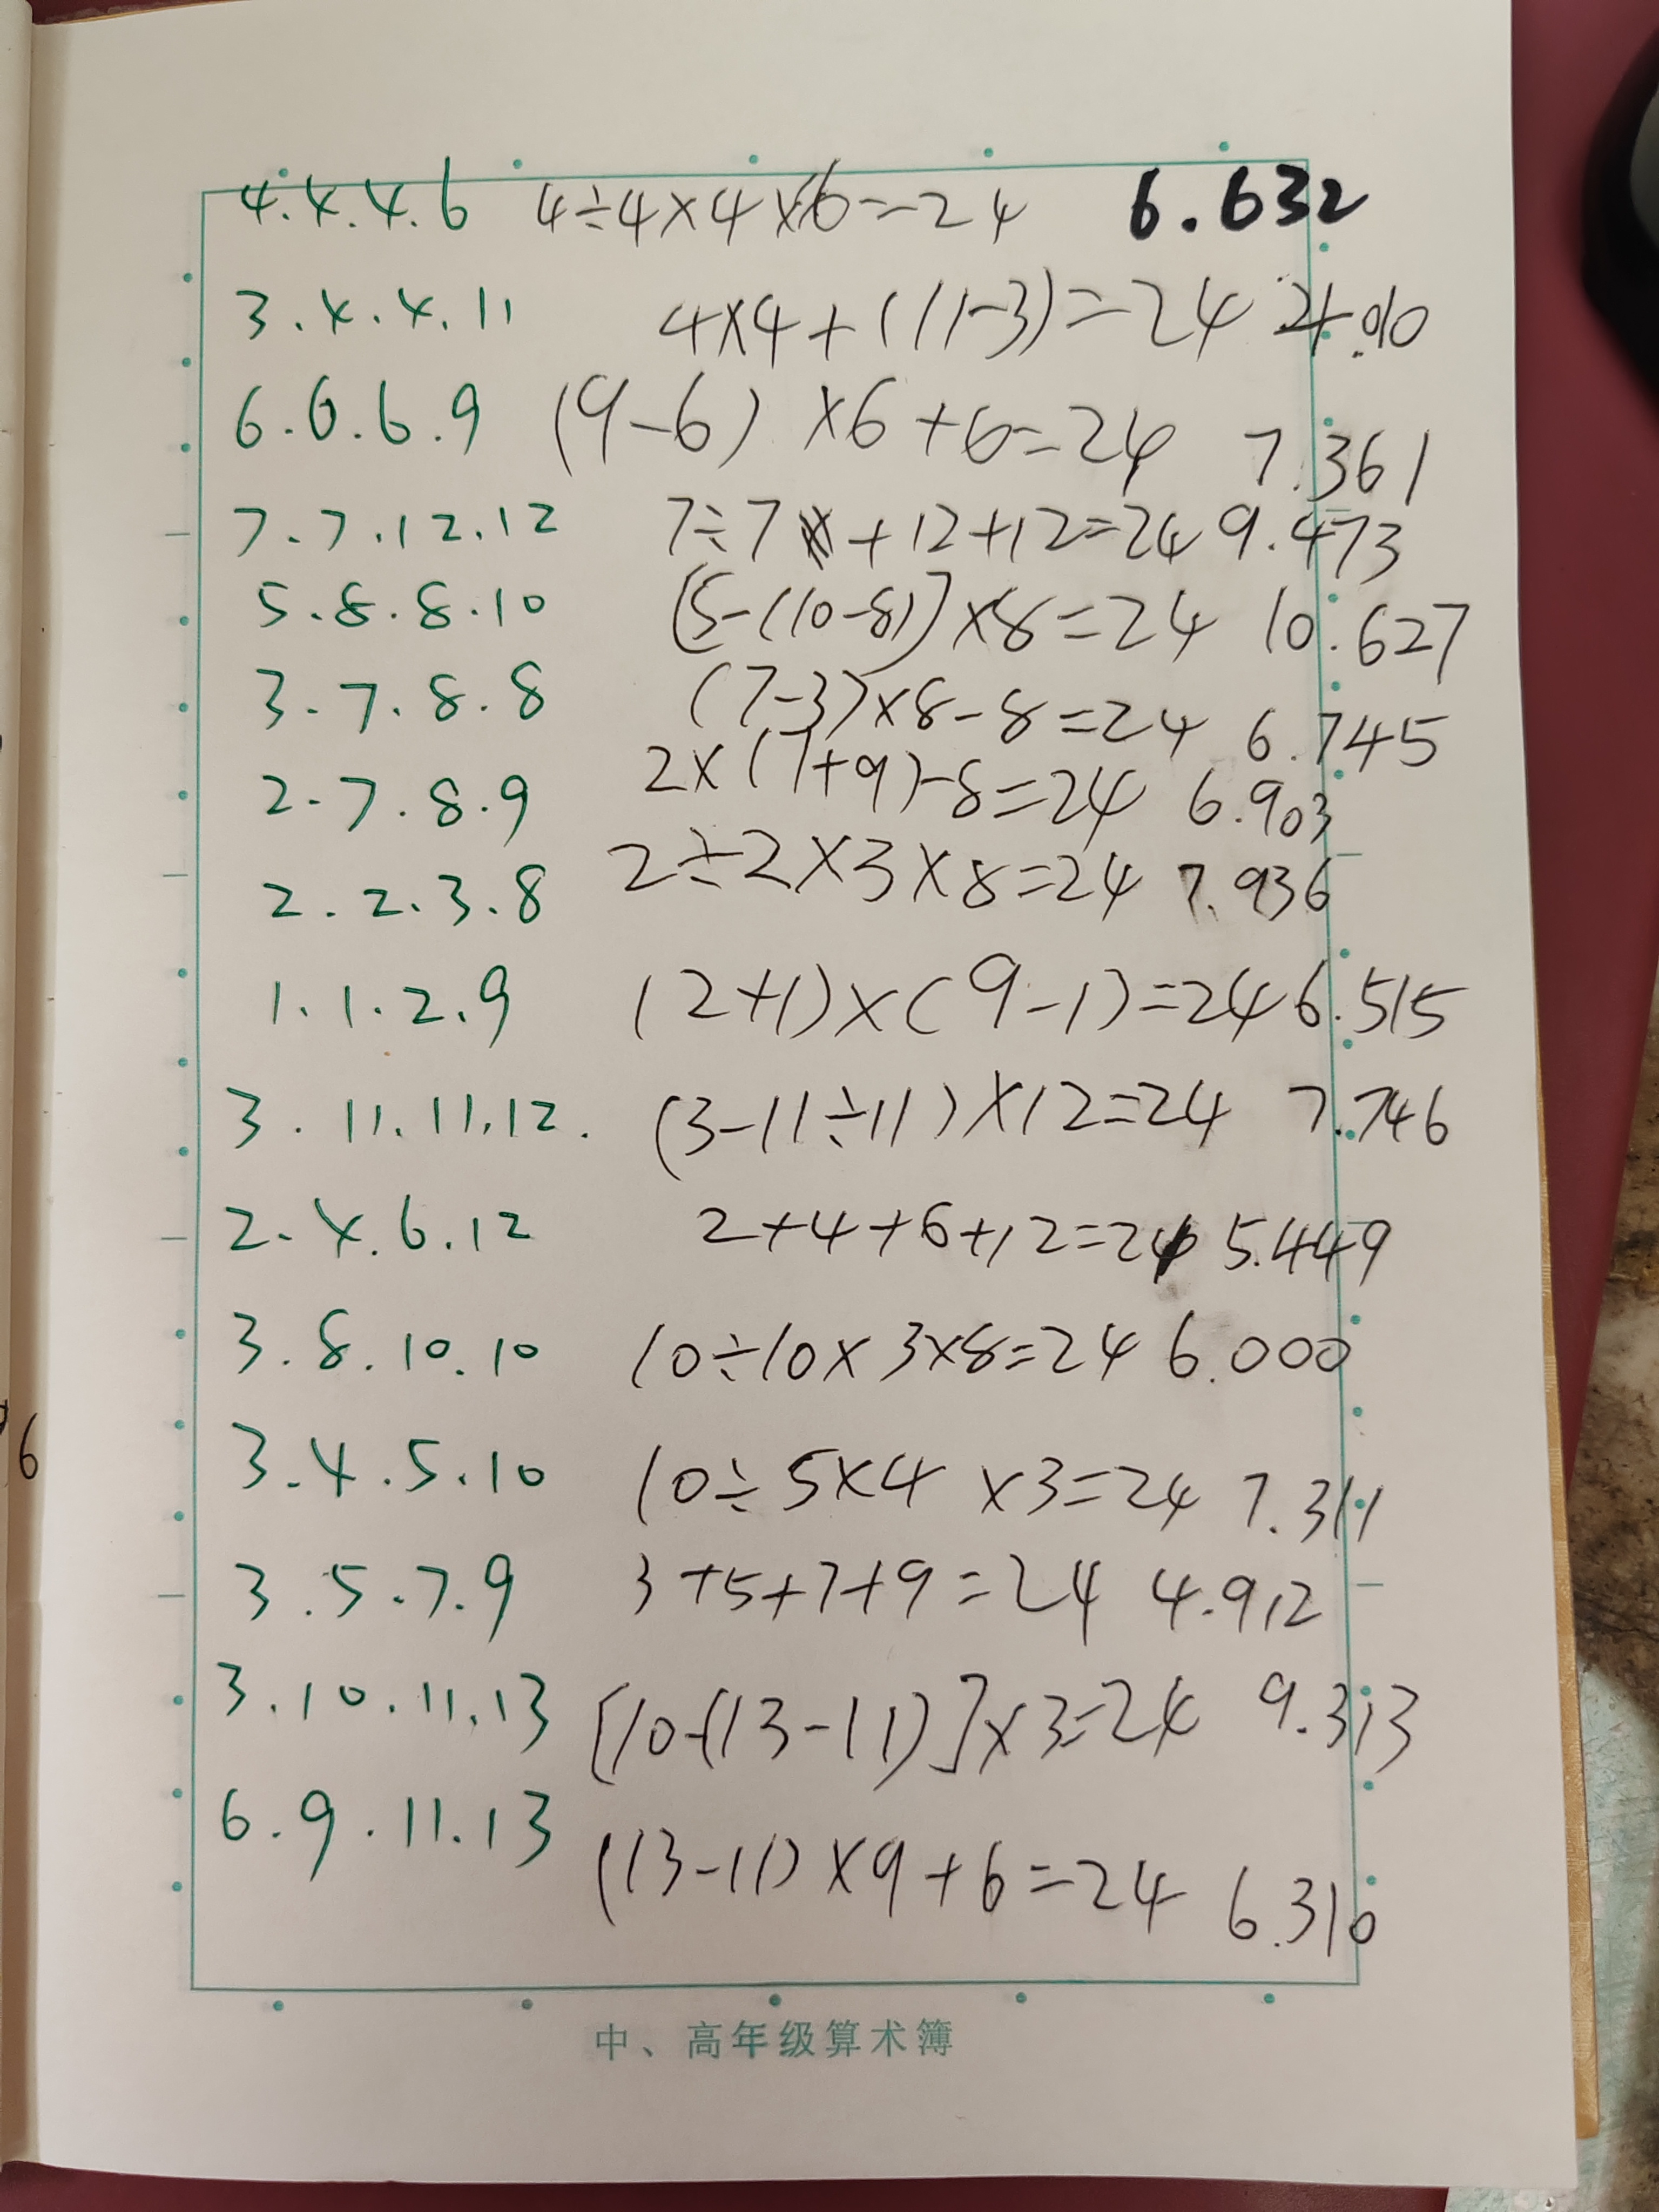 4.4.4.6 4÷4×4×6=24 6.632
3.4.4.11 4×4+(11-3)=24 4.010
6.6.6.9 (9-6)×6+6=24 7.361
7.7.12.12 7÷7+12+12=24 9.473
5.8.8.10 [5-(10-8)]×8=24 10.627
3.7.8.8 (7-3)×8-8=24 6.745
2.7.8.9 2×(7+9)-8=24 6.903
2.2.3.8 2÷2×3×8=24 7.936
1.1.2.9 (2+1)×(9-1)=24 6.515
3.11.11.12. (3-11÷11)×12=24 7.746
2.4.6.12 2+4+6+12=24 5.449
3.8.10.10 10÷10×3×8=24 6.000
3.4.5.10 10÷5×4×3=24 7.311
3.5.7.9 3+5+7+9=24 4.912
3.10.11.13 [10-(13-11)]×3=24 9.313
6.9.11.13 (13-11)×9+6=24 6.310
6
中、高年级算术簿